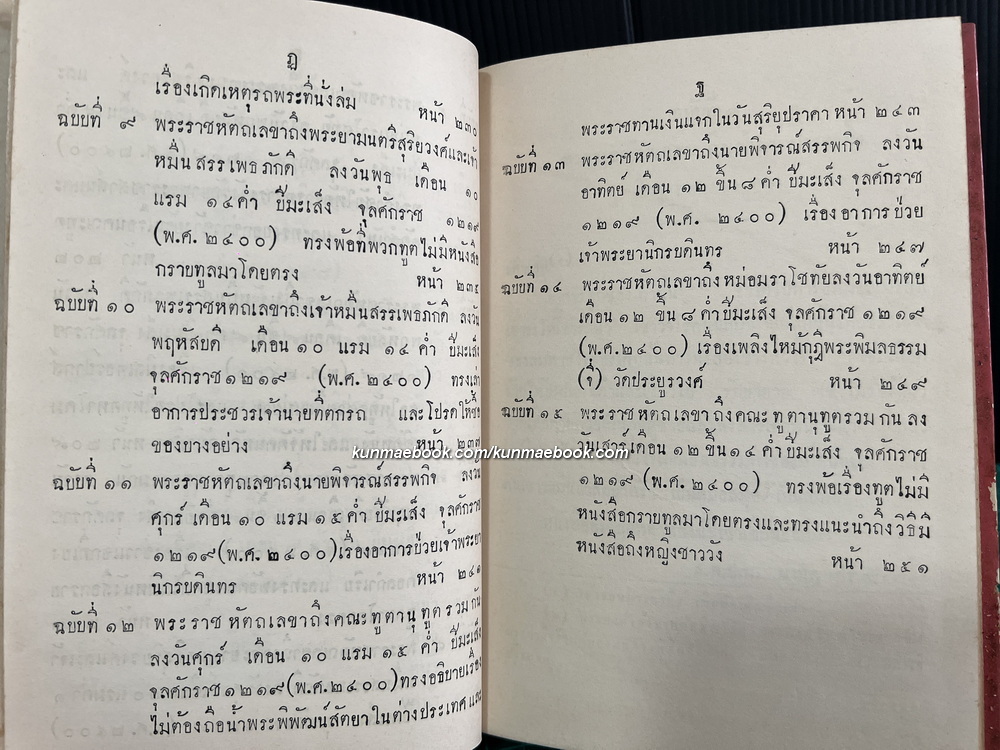 ฎ
เรื่องเกิดเหตุรถพระที่นั่งล่ม หน้า ๒๓๐
ฉบับที่ ๙ พระราชหัตถเลขาถึงพระยามนตรีสุริยวงศ์และเจ้า
หมื่นสรรเพธภักดี ลงวันพุธ เดือน ๑๐
แรม ๑๔ ค่ำ ปีมะเส็ง จุลศักราช ๑๒๑๙
(พ.ศ. ๒๔๐๐) ทรงพ้อที่พวกทูตไม่มีหนังสือ
กราบทูลมาโดยตรง หน้า ๒๓๕
ฉบับที่ ๑๐ พระราชหัตถเลขาถึงเจ้าหมื่นสรรเพธภักดี ลงวัน
พฤหัสบดี เดือน ๑๐ แรม ๑๔ ค่ำ ปีมะเส็ง
จุลศักราช ๑๒๑๙ (พ.ศ. ๒๔๐๐) ทรงเล่า
อาการประชวรเจ้านายที่ตกรถ และโปรดให้ซื้อ
ของบางอย่าง หน้า ๒๓๗
ฉบับที่ ๑๑ พระราชหัตถเลขาถึงนายพิจารณ์สรรพกิจ ลงวัน
ศุกร์ เดือน ๑๐ แรม ๑๕ ค่ำ ปีมะเส็ง จุลศักราช
๑๒๑๙ (พ.ศ. ๒๔๐๐) เรื่องอาการป่วยเจ้าพระยา
นิกรบดินทร หน้า ๒๔๑
ฉบับที่ ๑๒ พระราชหัตถเลขาถึงคณะทูตานุทูตรวมกัน
ลงวันศุกร์ เดือน ๑๐ แรม ๑๕ ค่ำ ปีมะเส็ง
จุลศักราช ๑๒๑๙ (พ.ศ. ๒๔๐๐) ทรงอธิบายเรื่อง
ไม่ต้องถือน้ำพระพิพัฒน์สัตยาในต่างประเทศ และ
ฐ
พระราชทานเงินแจกในวันสุริยุปราคา หน้า ๒๔๓
ฉบับที่ ๑๓ พระราชหัตถเลขาถึงนายพิจารณ์สรรพกิจ ลงวัน
อาทิตย์ เดือน ๑๒ ขึ้น ๘ ค่ำ ปีมะเส็ง จุลศักราช
๑๒๑๙ (พ.ศ. ๒๔๐๐) เรื่องอาการป่วย
เจ้าพระยานิกรบดินทร หน้า ๒๔๗
ฉบับที่ ๑๔ พระราชหัตถเลขาถึงหม่อมราโชทัยลงวันอาทิตย์
เดือน ๑๒ ขึ้น ๘ ค่ำ ปีมะเส็ง จุลศักราช ๑๒๑๙
(พ.ศ. ๒๔๐๐) เรื่องเพลิงไหม้กุฎีพระพิมลธรรม
(จี่) วัดประยูรวงศ์ หน้า ๒๔๙
ฉบับที่ ๑๕ พระราชหัตถเลขาถึงคณะทูตานุทูตรวมกัน ลง
วันเสาร์ เดือน ๑๒ ขึ้น ๑๔ ค่ำ ปีมะเส็ง จุลศักราช
๑๒๑๙ (พ.ศ. ๒๔๐๐) ทรงพ้อเรื่องทูตไม่มี
หนังสือกราบทูลมาโดยตรงและทรงแนะนำถึงวิธีมี
หนังสือถึงหญิงชาววัง หน้า ๒๕๑
kunmaebook.com/kunmaebook.com